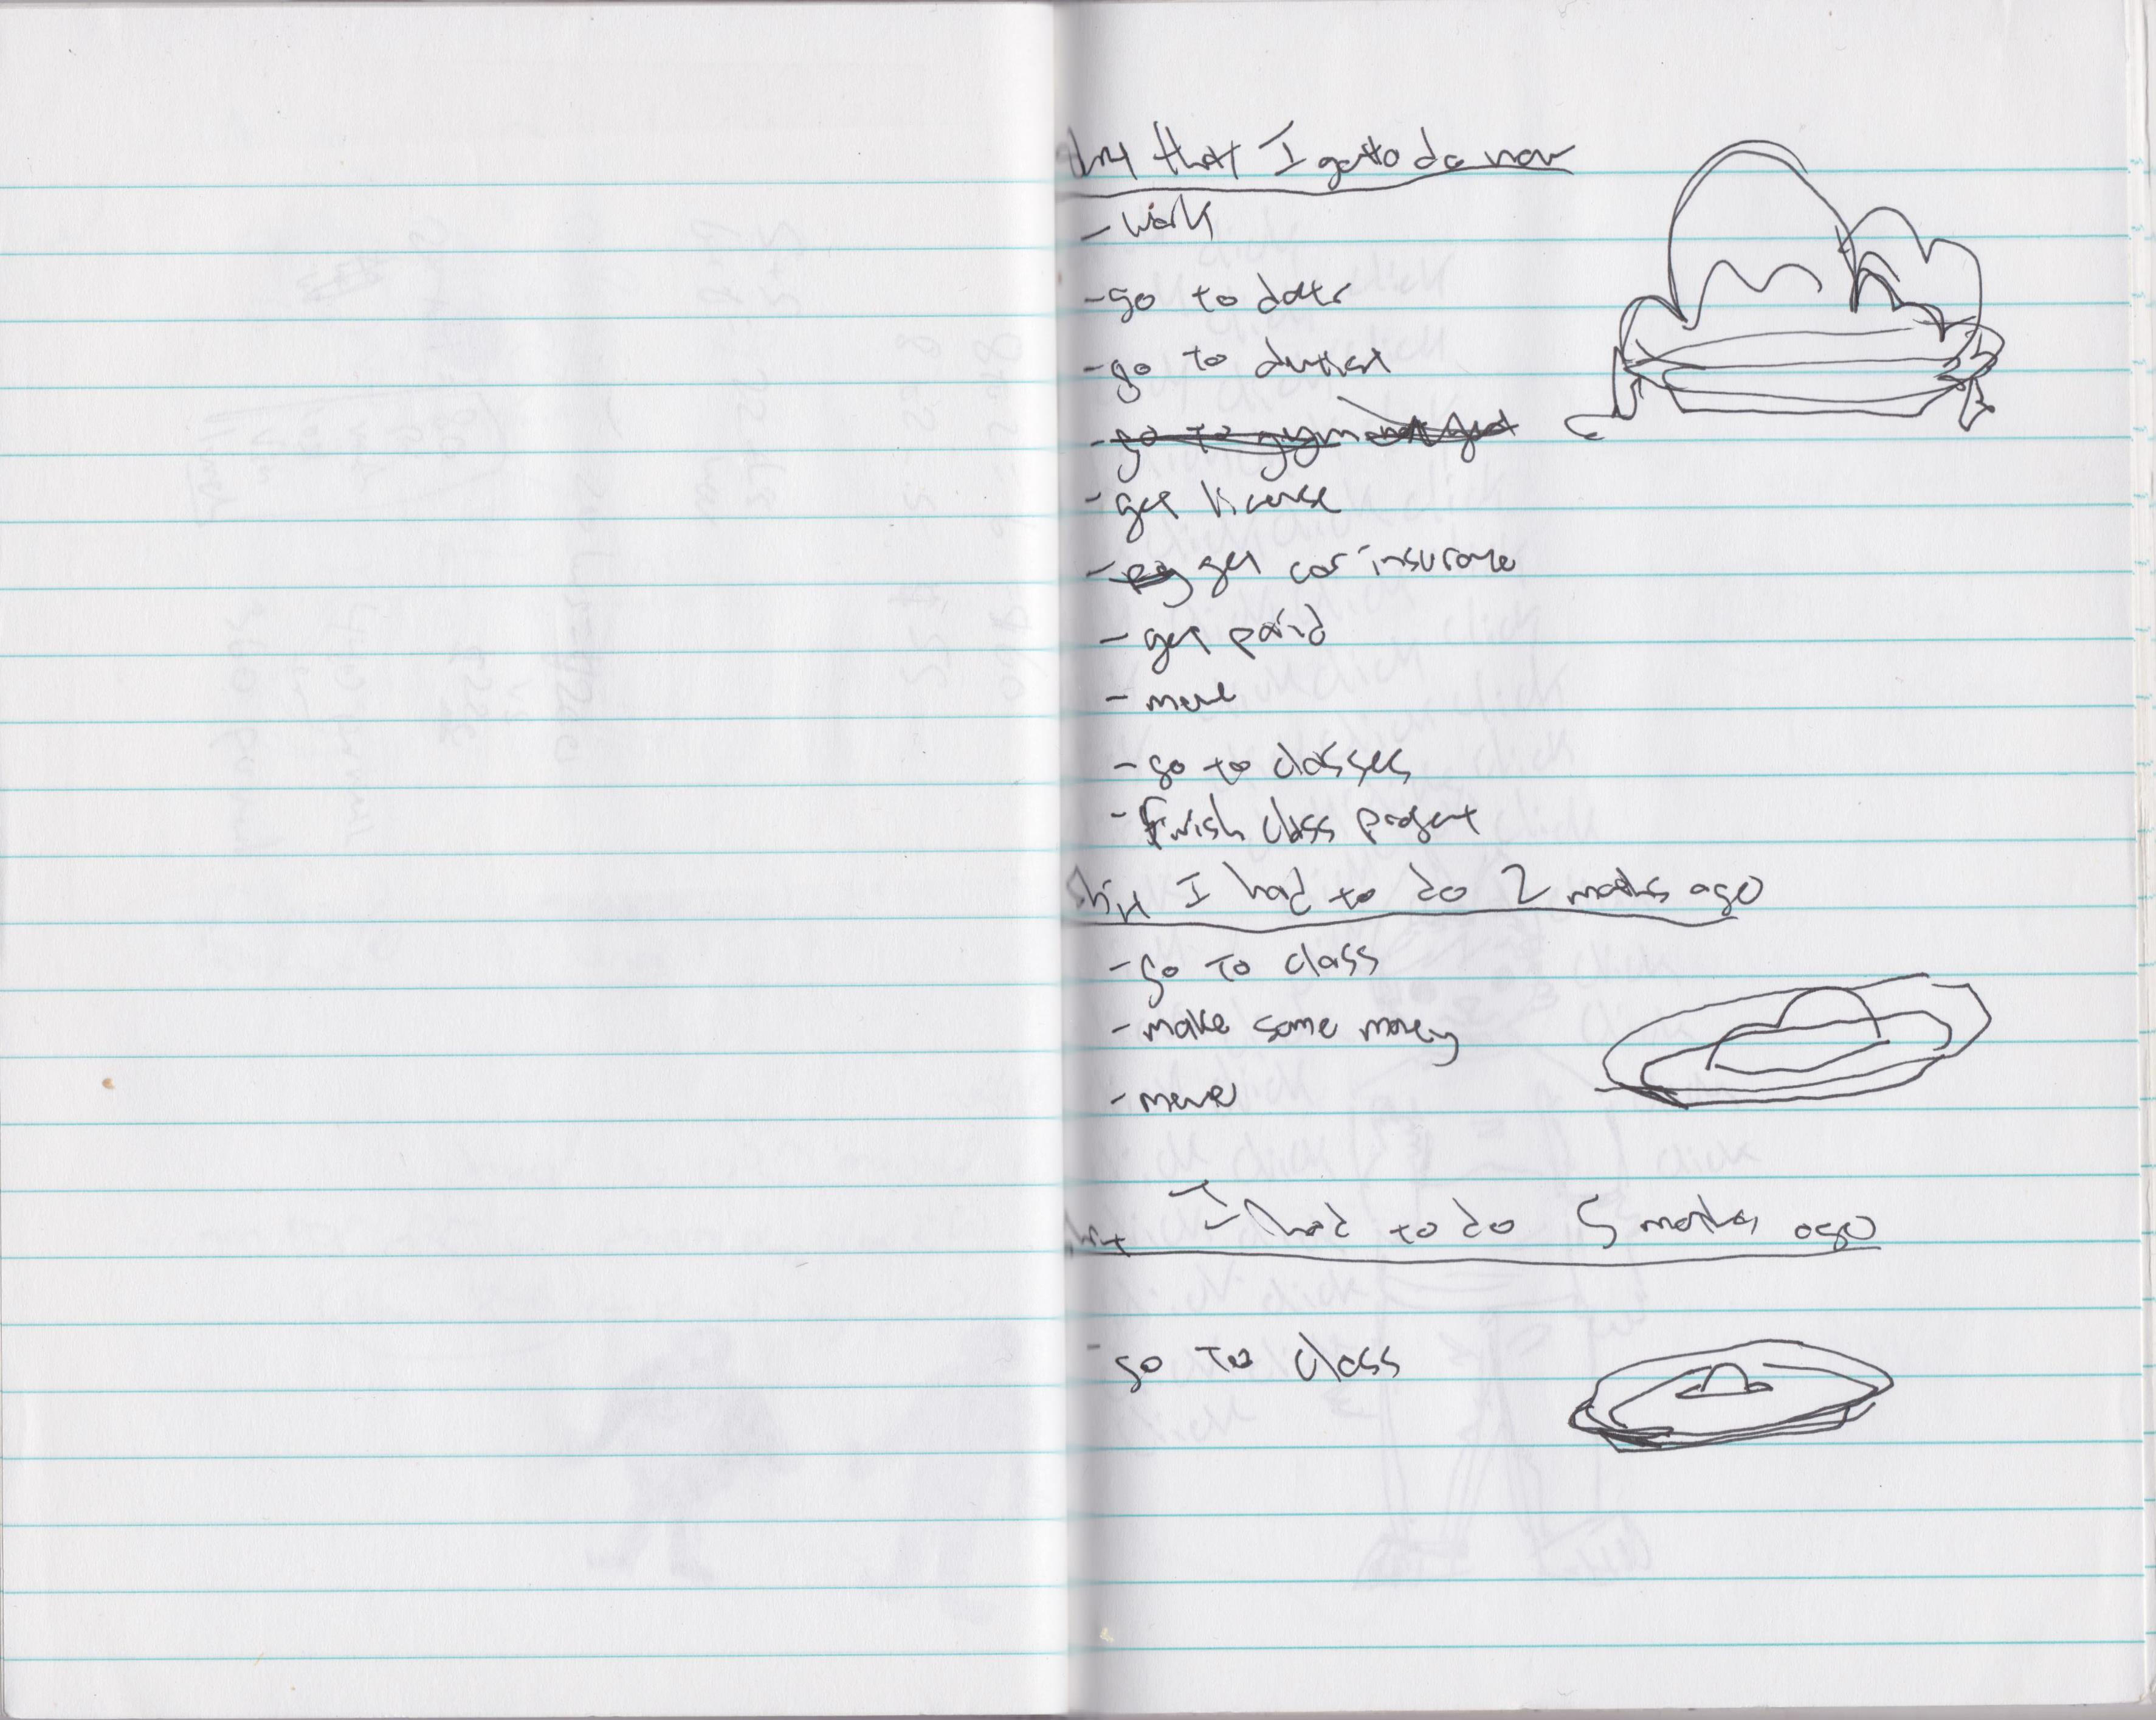 that I gotto do now
- work
- go to
- go to dentist
- go to gym
- get license
- get car insurance
- get paid
- move
- go to classes
- finish class project
Shit I had to do 2 months ago
- go to class
- make some money
- move
I had to do 5 months ago
- go to class